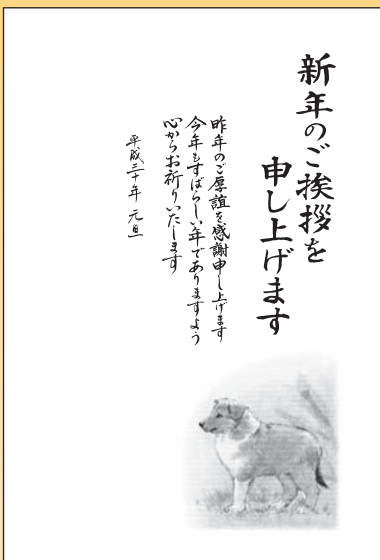 新年のご挨拶を
申し上げます
昨年のご厚誼を感謝申し上げます
今年もすばらしい年でありますよう
心からお祈りいたします
平成三十年 元旦